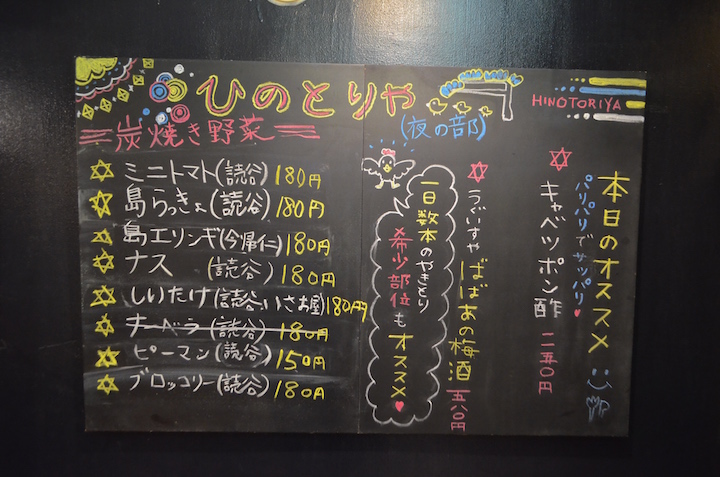 ひのとりや
(夜の部)
HINOTORIYA
炭焼き野菜
ミニトマト(読谷) 180円
島らっきょ(読谷) 180円
島エリンギ(今帰仁) 180円
ナス (読谷) 180円
しいたけ(読谷、いさお屋) 180円
ナーベラ(読谷) 180円
ピーマン(読谷) 150円
ブロッコリー(読谷) 180円
本日のオススメ
パリパリでサッパリ
キャベツポン酢 二五〇円
うぐいすや ばばあの梅酒 五八〇円
一日数本のやきとり
希少部位も
オススメ